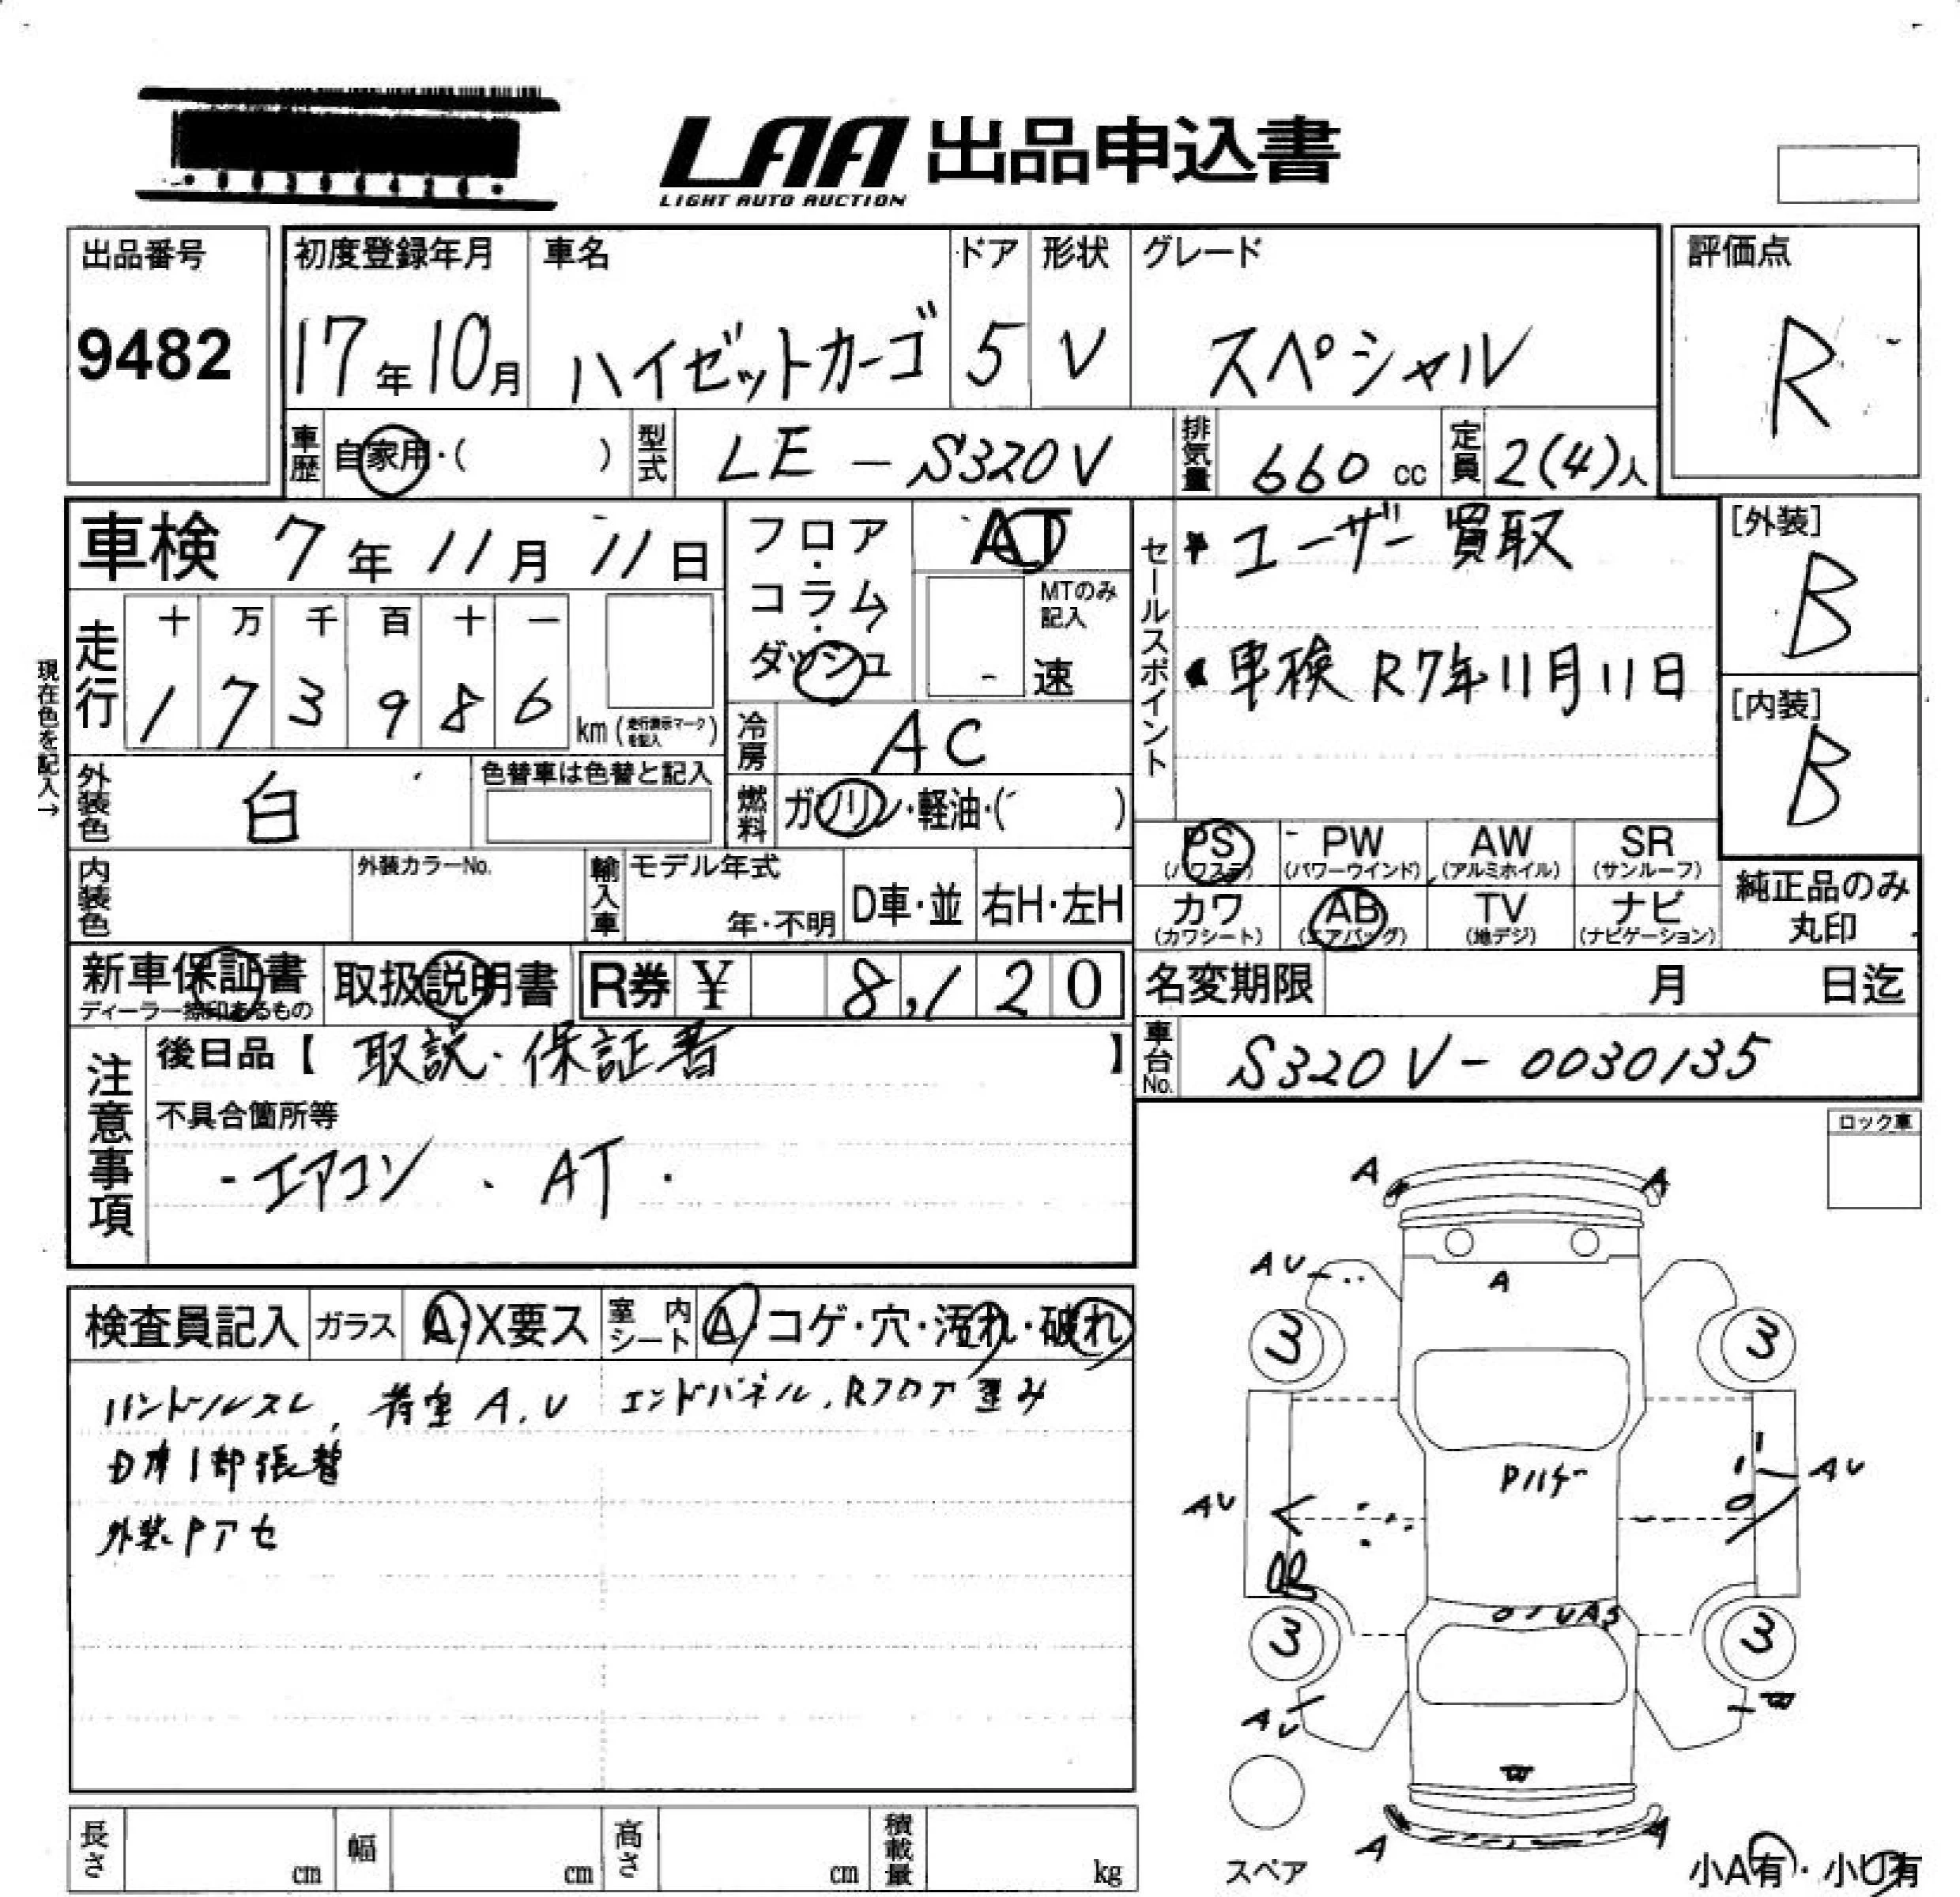 LAA 出品申込書
LIGHT AUTO AUCTION
出品番号
9482
初度登録年月 車名 ドア 形状 グレード
17年10月 ハイゼットカーゴ 5 V スペシャル
評価点
R
車歴 自家用・( ) 型式 LE-S320V 排気量 660cc 定員 2(4)人
車検 7年11月11日
フロア・コラム・ダッシュ
AT
MTのみ記入
- 速
セールスポイント
ユーザー買取
車検R7年11月11日
[外装]
B
[内装]
B
現在色を記入→
走行 十 万 千 百 十 一
1 7 3 9 8 6 km (走行表示マークを記入)
冷房 AC
外装色 白 色替車は色替と記入
燃料 ガソリン・軽油・( )
PS (パワステ) PW (パワーウインド) AW (アルミホイル) SR (サンルーフ)
カワ (カワシート) AB (エアバッグ) TV (地デジ) ナビ (ナビゲーション)
純正品のみ丸印
内装色 外装カラーNo. 輸入車 モデル年式 年・不明 D車・並 右H・左H
新車保証書 ディーラー捺印あるもの 取扱説明書 R券 ¥ 8,120
名変期限 月 日迄
車台No. S320V-0030135
注意事項
後日品【 取説・保証書 】
不具合箇所等
・エアコン、AT.
ロック車
検査員記入 ガラス A・X要ス 室内シート A・コゲ・穴・汚れ・破れ
ハンドルスレ, 荷室A,U エンドパネル,Rフロア歪み
内 1部張替
外装 Pアセ
A A
AU A
3 3
Pハゲ
AU AU
UA3
3 3
AU W
W
A A
スペア
小A有・小U有
長さ cm 幅 cm 高さ cm 積載量 kg